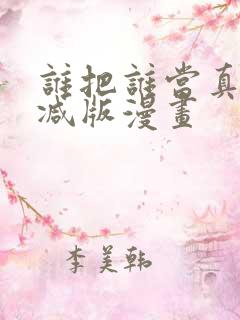 誰把誰當真
減版漫畫
李美韩